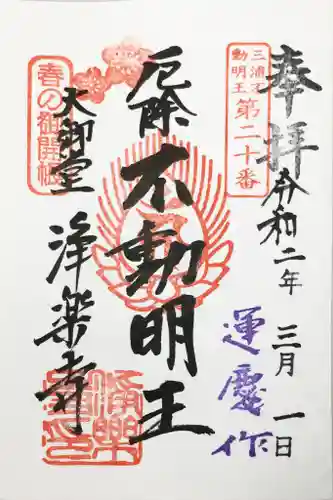 奉拝
令和二年 三月 一日
三浦不動明王
第二十番
運慶作
厄除
不動明王
春の御開帳
大御堂
浄楽寺